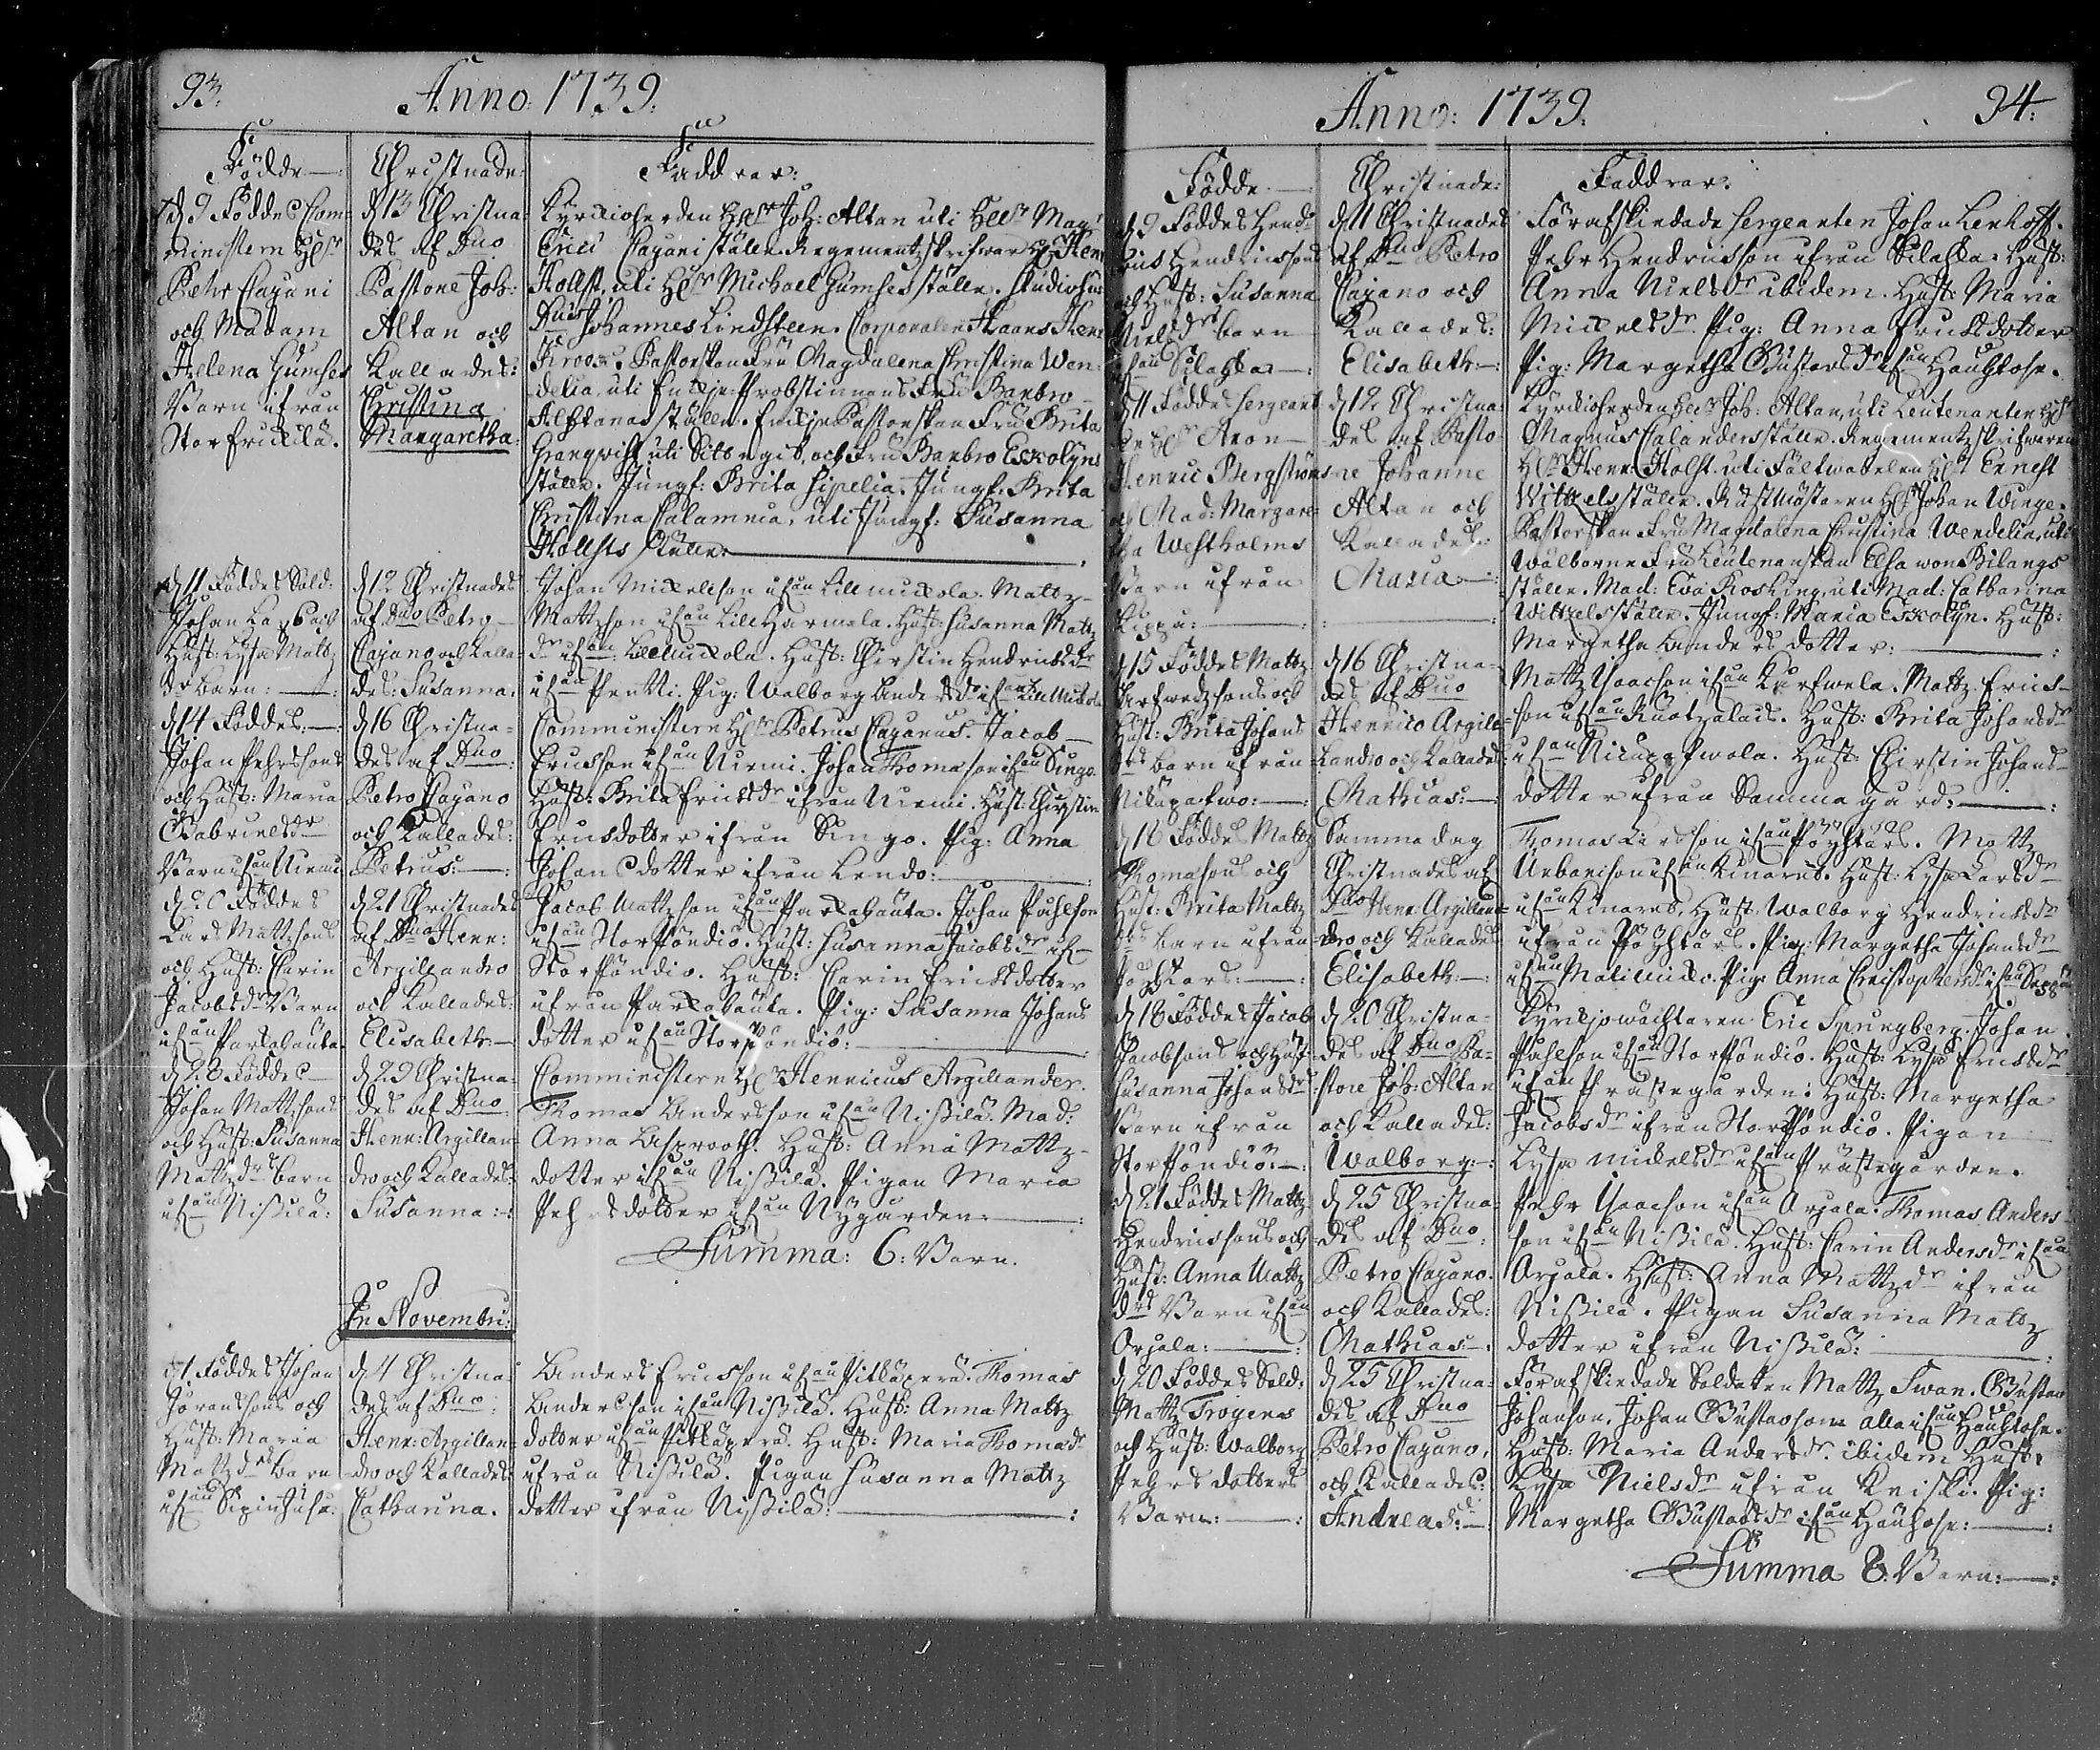 93.
Anno: 1739.
Födde
Christnade:
Faddrar:
d 9 Födde Com
ministern H:r
Petr Cajani
och Madam
Helena Gumse
Barn ifrån
Storfrickilä.
d 13 Christna
des af Dno
Pastore Joh:
Altan och
Kallades:
Christina
Margaretha:
Kyrckioherden H:r Joh: Altan uti H:r Mag:
Erici Cajani ställe. Regementzskrifwar H: Henr
Hollst, uti H:r Michael Gumses ställe. Studiosus
Dnus Johannes Lindsteen. Corporalen Hans Henr
Kroок. Pastorskan Fru Magdalena Christina Wen-
delia, uti Enckje Probstinnans Fru Barbro
Alftanas ställe. Enckje Pastorskan Fru Brita
uti och Fru Barbro Escolins
ställe. Jungf: Brita Sipelia. Jungf: Brita
Christina Calamnia, uti Jungf: Susanna
Hollsts ställe:
d 11 Föddes Sold:
Johan och
Hust: Lysa Mattz
dr barn:
d 12 Christnades
af Dno Petro
Cajano och Kalla
des: Susanna.
Johan Mickelsson ifrån Lill mickola. Mattz
Mattzson ifrån Lill Harmala. Hust: Susanna Mattz
dr ifrån Lillmickola. Hust: Chirstin Hendricksdr
ifrån Pentti. Pig: Walborg Andersdr ifrån Lillmickola
d 14 Föddes:
Johan Pehrssons
och Hust: Maria
Gabrielsdr
Barn ifrån Niemi
d 16 Christna-
des af Dno:
Petro Cajano
och Kallades:
Petrus:
Comministern H:r Petrus Cajanus. Jacob
Ericsson ifrån Niemi. Johan Thomasson ifrån Singo.
Hust: Brita Ericksdr ifrån Niemi. Hust: Chirstin
Ericsdotter ifrån Singo. Pig: Anna
Johansdotter ifrån Lendo:
d 20 Föddes
Lars Mattzsons
och Hust: Carin
Jacobsdr Barn
ifrån Parckahauta.
d 21 Christnades
af Dno Henr:
Argillandro
och Kallades:
Elisabeth:
Jacob Mattzson ifrån Parckahauta. Johan Påhlson
ifrån Storpöndiö. Hust: Susanna Jacobsdr ifr
Storpöndiö. Hust: Carin Ericksdotter
ifrån Parckahauta. Pig: Susanna Johans
dotter ifrån Storpöndiö:
d 28 Föddes
Johan Mattzsons
och Hust: Susanna
Mattzdrs barn
ifrån Nissilä:
d 29 Christna-
des af Dno:
Henr: Argillan-
dro och Kallades:
Susanna:
Comministern H:r Henricus Argillander.
Thomas Andersson ifrån Nissilä. Mad:
Anna Asprooth. Hust: Anna Mattz-
dotter ifrån Nissilä. Pigan Maria
Pehrsdotter ifrån Nygården:
Summa: 6: Barn.
In Novembri:
d 1. Föddes Johan
Göranssons och
Hust: Maria
Mattzdrs barn
ifrån
d 4 Christna
des af Dno:
Henr: Argillan-
dro och Kallades
Catharina.
Anders Ericsson ifrån Pitkäperä. Thomas
Andersson ifrån Nissilä. Hust: Anna Mattz
dotter ifrån Pitkäperä. Hust: Maria Thomasdr
ifrån Nissilä. Pigan Susanna Mattz
dotter ifrån Nissilä:
Anno: 1739.
94.
Födde
Christnade:
Faddrar:
d 9 Föddes Hend
ricks Hendricssons
och Hust: Susanna
Nielsdrs barn
ifrån
d 11 Christnades
af Dno Petro
Cajano och
Kallades:
Elisabeth:
Förafskiedade Sergeanten Johan Lenhoff.
Pehr Hendricsson ifrån Hust:
Anna Nielsdr ibidem. Hust: Maria
Mickelsdr. Pig: Anna Ericksdotter
Pig: Margetha Gustavsdr ifrån Hauhtose.
d 11 Föddes Sergeant
H:r Aron
Henric Bergströms
och Mad: Margare-
tha Westholms
Barn ifrån
d 12 Christna-
des af Pasto-
re Johanne
Altan och
Kallades:
Maria:
Kyrckioherden H:r Joh: Altan, uti Leutenanten H:r
Magnus Calanders ställe. Regementzskrifwaren
H:r Henr: Holst uti Fältwäbelen H:r Ernest
Witzels ställe. Rustmästaren H:r Johan Winge.
Pastorskan Fru Magdalena Christina Wendelia, uti
Wälborne Fru Leutenanskan Elsa von Bilangs
ställe. Mad: Eva Rosling, uti Mad: Catharina
Witzels ställe. Jungf: Maria Escolin. Hust:
Margetha Andersdotter:
d 15 Föddes Mattz
och
Hust: Brita Johans
drs barn ifrån
d 16 Christna-
des af Dno
Henrico Argil-
landro och Kallades
Mathias:
Mattz Isacson ifrån Karfwela. Mattz Erics-
son ifrån Hust: Brita Johansdr
ifrån Hust: Chirstin Johans
dotter ifrån Sammagård:
d 16 Föddes Mattz
Thomasons och
Hust: Brita Mattz
drs barn ifrån
Samma dag
Christnades af
Dno Henr: Argillan-
dro och Kallades
Elisabeth:
Thomas Larsson ifrån Pöyhtäri. Mattz
Urbanison ifrån Kinares. Hust: Lysa Larsdr
ifrån Kinares, Hust: Walborg Hendricksdr
ifrån Pöyhtäri. Pig: Margetha Johansdr
ifrån Pig: Anna Christophersdr ifrån
d 18 Föddes Jacob
Jacobsons och Hust:
Susanna Johansdrs
Barn ifrån
Storpöndiö:
d 20 Christna-
des af Dno Pa-
store Joh: Altan
och Kallades:
Walborg:
Kyrckjowächtaren Eric Springberg. Johan
Påhlson ifrån Storpöndiö. Hust: Lysa Ericsdr
ifrån Prästegården: Hust: Margetha
Jacobsdr ifrån Storpöndiö. Pigan
Lysa Mickelsdr ifrån Prästegården.
d 21 Föddes Mattz
Hendricssons och
Hust: Anna Mattz
drs Barn ifrån
Orjala:
d 25 Christna-
des af Dno:
Petro Cajano.
och Kallades:
Mathias:
Pehr Isacson ifrån Orjala. Thomas Anders
son ifrån Nissilä. Hust: Carin Andersdr ifrån
Orjala. Hust: Anna Mattzdr ifrån
Nissilä. Pigan Susanna Mattz
dotter ifrån Nissilä:
d 20 Föddes Sold:
Mattz Trogens
och Hust: Walborg
Pehrsdotters
Barn:
d 25 Christna-
des af Dno
Petro Cajano,
och Kallades:
Andreas:
Förafskiedade Soldaten Mattz Swan. Gustav
Johanson, Johan Gustavson alla ifrån Hauhtose.
Hust: Maria Andersdr ibidem Hust:
Lysa Nielsdr ifrån Keiski. Pig:
Margetha Gustavsdr ifrån Hauhose:
Summa 8: Barn: